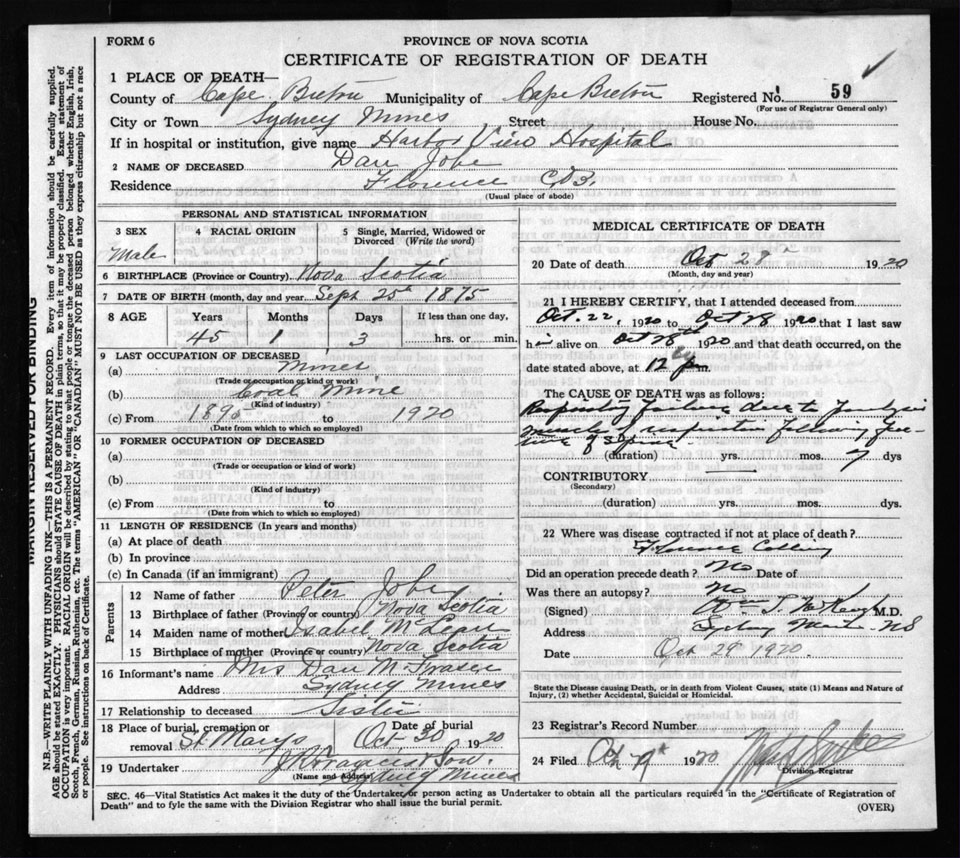 FORM 6
PROVINCE OF NOVA SCOTIA
CERTIFICATE OF REGISTRATION OF DEATH
1 PLACE OF DEATH—
County of Cape Breton Municipality of Cape Breton Registered No. 59
(For use of Registrar General only)
City or Town Sydney Mines Street House No.
If in hospital or institution, give name Harbor View Hospital
2 NAME OF DECEASED Dan Jobe
Residence Florence C.B.
(Usual place of abode)
PERSONAL AND STATISTICAL INFORMATION
3 SEX 4 RACIAL ORIGIN 5 Single, Married, Widowed or Divorced (Write the word)
Male
6 BIRTHPLACE (Province or Country) Nova Scotia
7 DATE OF BIRTH (month, day and year) Sept 25th 1875
8 AGE Years Months Days If less than one day,
45 1 3 hrs. or min.
9 LAST OCCUPATION OF DECEASED
(a) Miner
(Trade or occupation or kind or work)
(b) Coal Mine
(Kind of industry)
(c) From 1895 to 1920
(Date from which to which so employed)
10 FORMER OCCUPATION OF DECEASED
(a)
(Trade or occupation or kind of work)
(b)
(Kind of industry)
(c) From to
(Date from which to which so employed)
11 LENGTH OF RESIDENCE (In years and months)
(a) At place of death
(b) In province
(c) In Canada (if an immigrant)
Parents
12 Name of father Peter Jobe
13 Birthplace of father (Province or country) Nova Scotia
14 Maiden name of mother Isabel McLean
15 Birthplace of mother (Province or country) Nova Scotia
16 Informant's name Mrs Dan N. Fraser
Address Sydney Mines
17 Relationship to deceased Sister
18 Place of burial, cremation or removal St. Marys Date of burial Oct. 30 1920
19 Undertaker & Son.
(Name and Address) Sydney Mines
MEDICAL CERTIFICATE OF DEATH
20 Date of death Oct 28th 1920
(Month, day and year)
21 I HEREBY CERTIFY, that I attended deceased from
Oct. 22, 1920 to Oct 28 1920 that I last saw
him alive on Oct 28th 1920 and that death occurred, on the
date stated above, at 12 pm.
The CAUSE OF DEATH was as follows:
Respiratory failure due to Paralysis
muscles of respiration following frac-
ture of Spine.
(duration) yrs. mos. 7 dys
CONTRIBUTORY
(Secondary)
(duration) yrs. mos. dys.
22 Where was disease contracted if not at place of death?
Florence Colliery
Did an operation precede death? No Date of
Was there an autopsy? No
(Signed) M.D.
Address Sydney Mines NS
Date Oct 28 1920.
State the Disease causing Death, or in death from Violent Causes, state (1) Means and Nature of Injury, (2) whether Accidental, Suicidal or Homicidal.
23 Registrar's Record Number
24 Filed 1920
Division Registrar
SEC. 46—Vital Statistics Act makes it the duty of the Undertaker or person acting as Undertaker to obtain all the particulars required in the "Certificate of Registration of
Death" and to fyle the same with the Division Registrar who shall issue the burial permit.
(OVER)
MARGIN RESERVED FOR BINDING
N.B.—WRITE PLAINLY WITH UNFADING INK—THIS IS A PERMANENT RECORD. Every item of information should be carefully supplied.
AGE should be stated EXACTLY. PHYSICIANS should STATE CAUSE OF DEATH in plain terms, so that it may be properly classified. Exact statement of
OCCUPATION is very important. RACIAL ORIGIN will be described by stating to what people or tongue the deceased person belonged whether English, Irish,
Scotch, French, German, Russian, Ruthenian, etc. The terms "AMERICAN" OR "CANADIAN" MUST NOT BE USED as they express citizenship but not a race
or people. See instructions on back of Certificate.